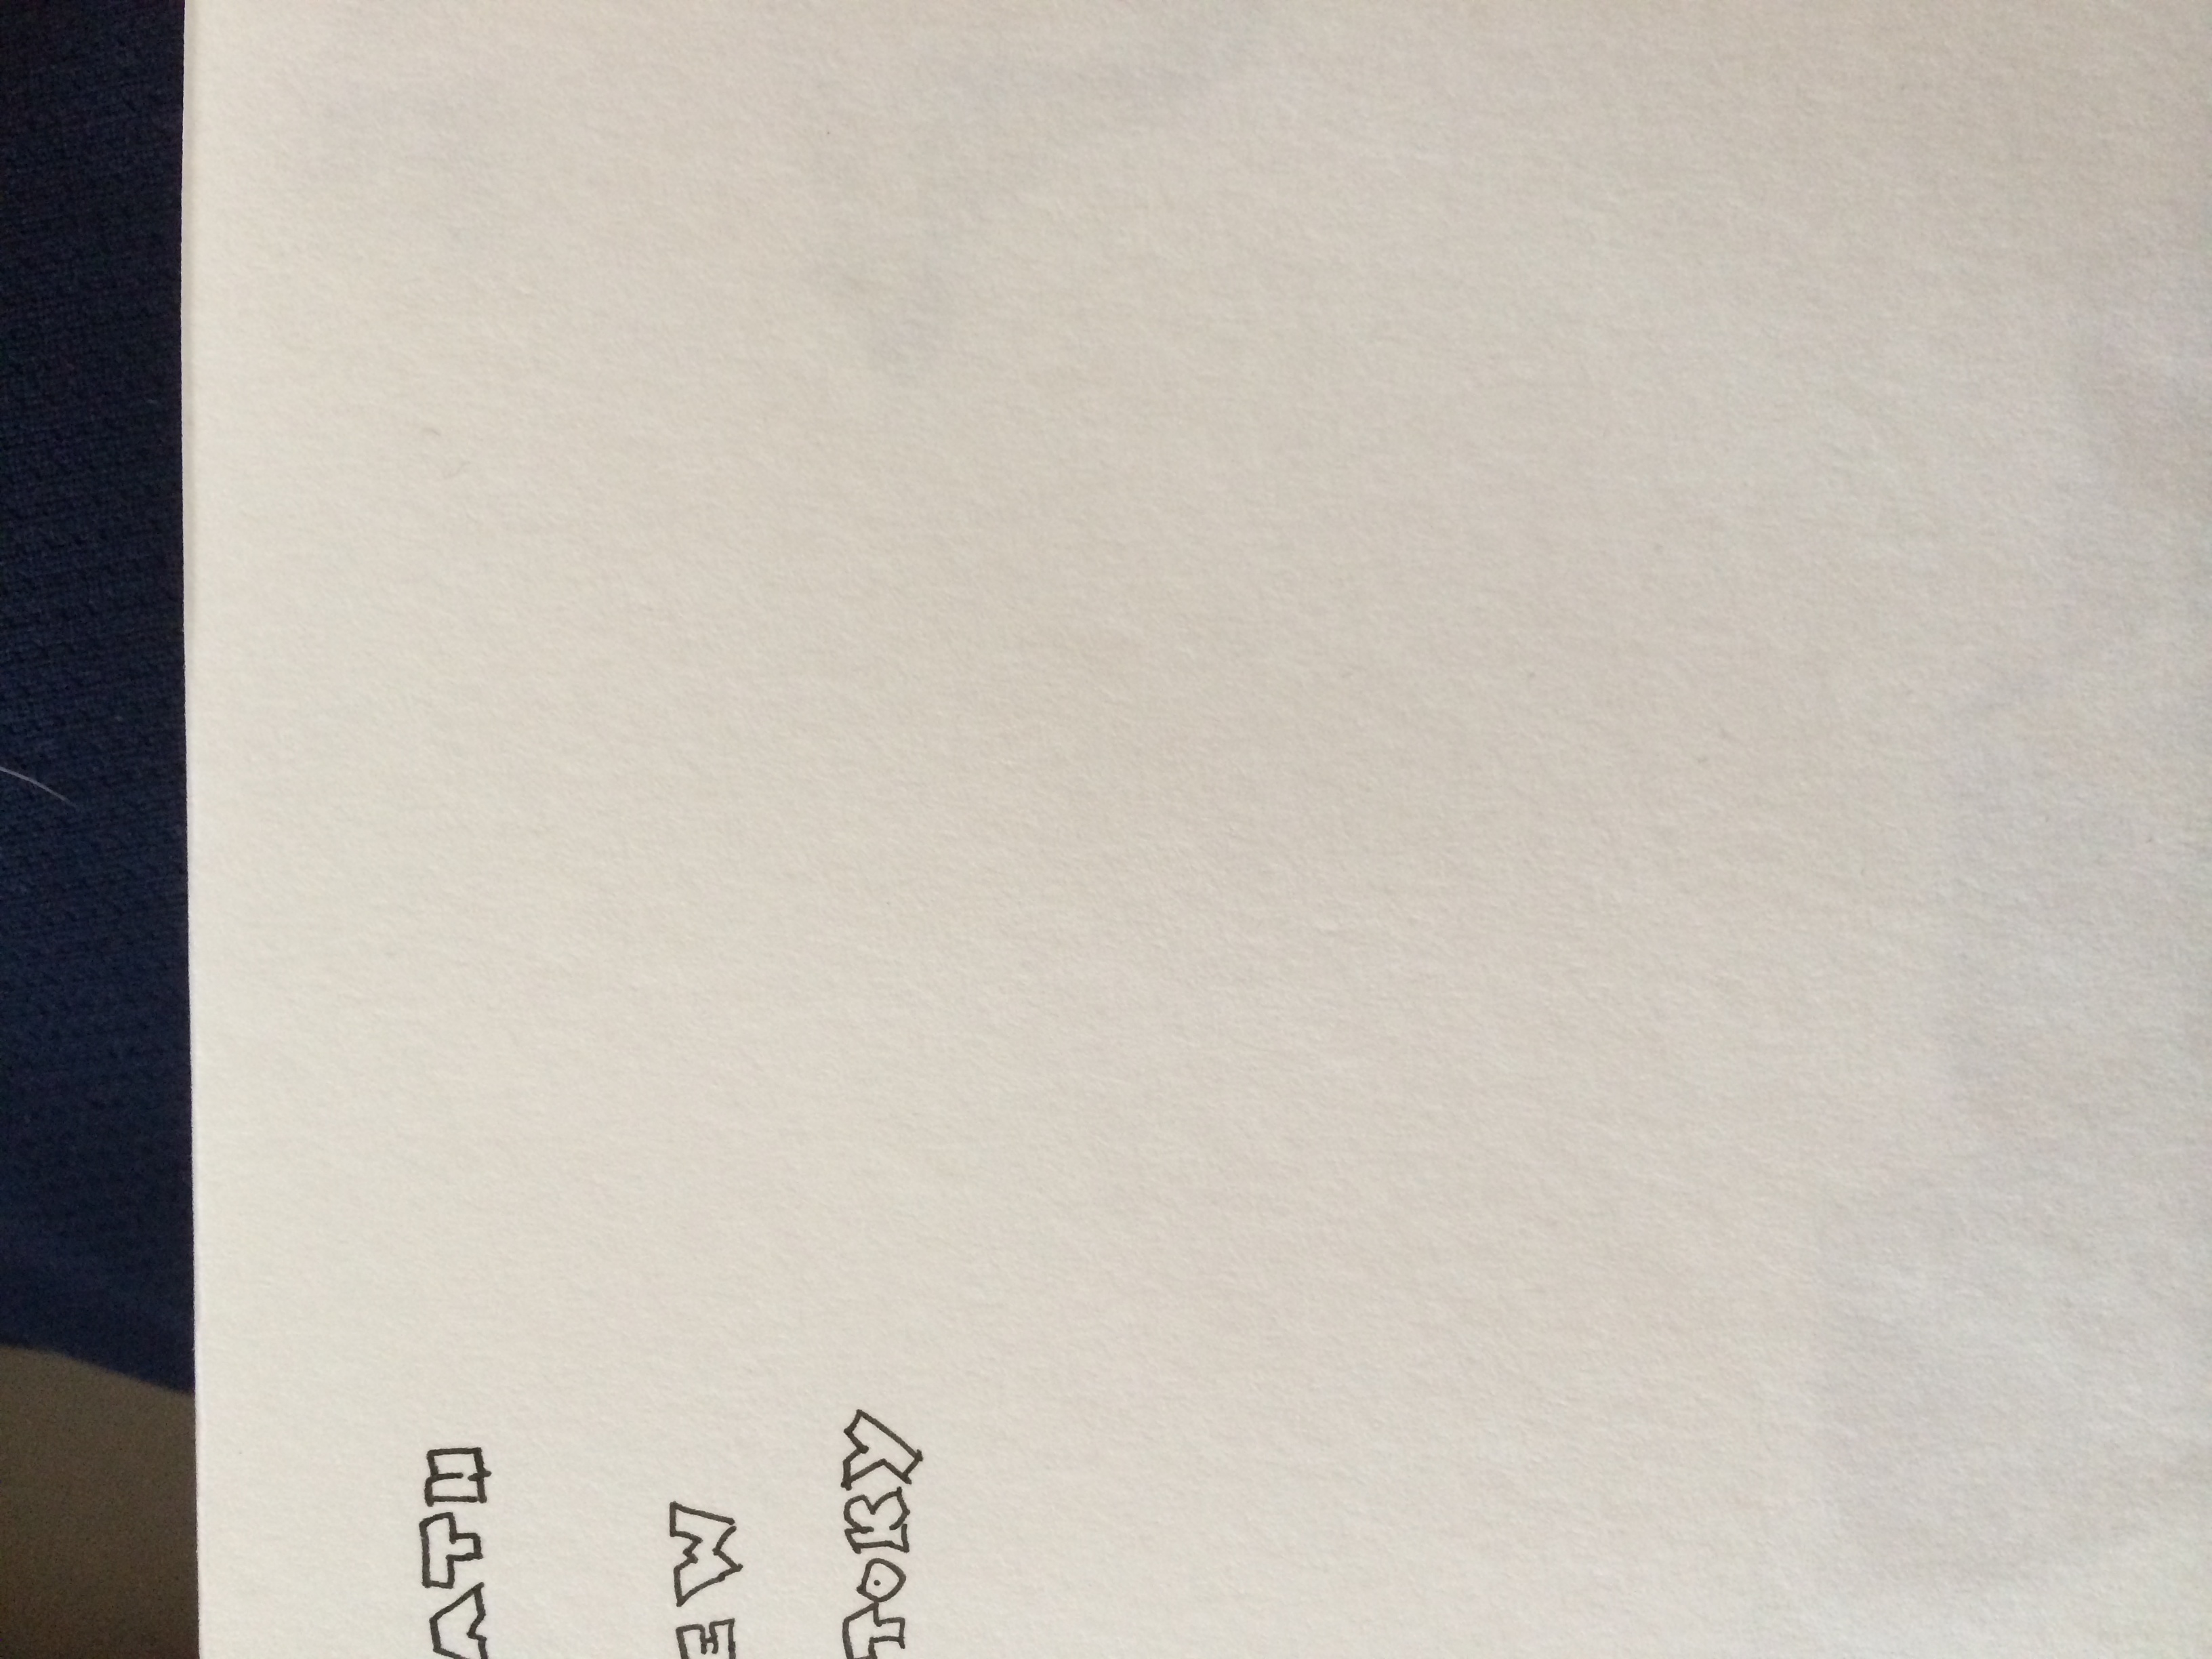 ATH
EW
TOKY